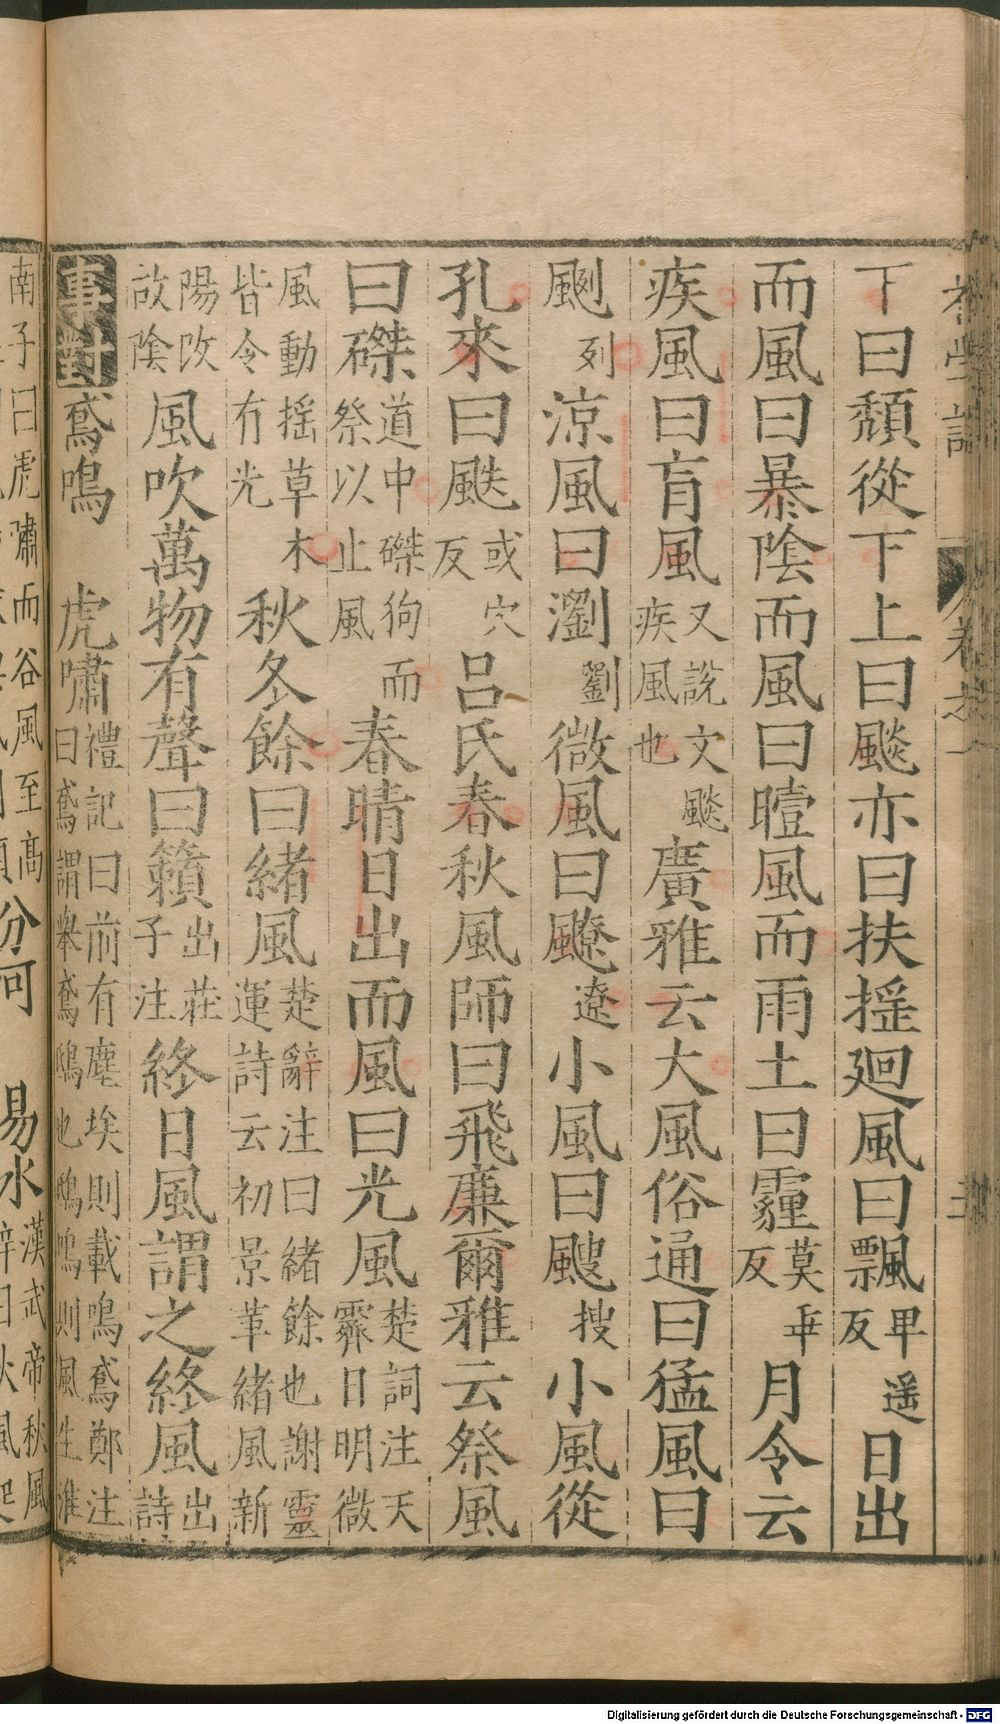 初學記
卷之一
三
下曰頹從下上曰飈亦曰扶搖廻風曰飄甲遥反日出
而風曰暴陰而風曰曀風而雨土曰霾莫乖反月令云
疾風曰盲風又說文颷疾風也廣雅云大風俗通曰猛風曰
颲列涼風曰瀏劉微風曰飉遼小風曰颼搜小風從
孔來曰䬆或穴反呂氏春秋風師曰飛廉爾雅云祭風
曰磔道中磔狗而祭以止風春晴日出而風曰光風楚詞注天霽日明微
風動揺草木皆令有光秋冬餘曰緒風楚辭注曰緒餘也謝靈運詩云初景革緒風新
陽改故陰風吹萬物有聲曰籟出莊子注終日風謂之終風出詩
事對鳶鳴 虎嘯禮記曰前有塵埃則載鳴鳶鄭注曰鳶謂舉鳶鴟也鴟鳴則風生淮
南子曰虎嘯而谷風至高分河 易水漢武帝秋風辭曰秋風起
Digitalisierung gefördert durch die Deutsche Forschungsgemeinschaft - DFG